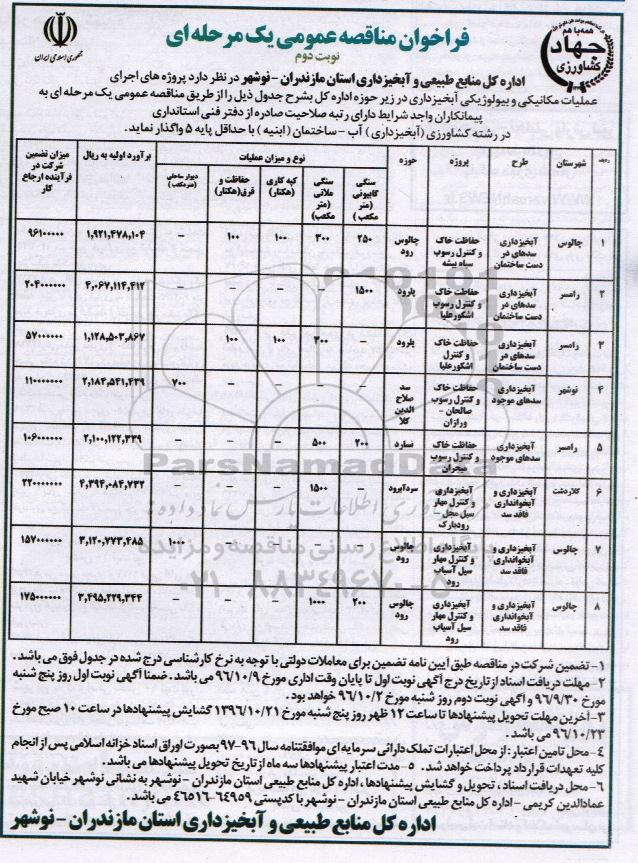 همه با هم
جهاد
کشاورزی
جمهوری اسلامی ایران
فراخوان مناقصه عمومی یک مرحله ای
نوبت دوم
اداره کل منابع طبیعی و آبخیزداری استان مازندران - نوشهر در نظر دارد پروژه های اجرای
عملیات مکانیکی و بیولوژیکی آبخیزداری در زیر حوزه اداره کل بشرح جدول ذیل را از طریق مناقصه عمومی یک مرحله ای به
پیمانکاران واجد شرایط دارای رتبه صلاحیت صادره از دفتر فنی استانداری
در رشته کشاورزی (آبخیزداری) آب - ساختمان (ابنیه) با حداقل پایه ۵ واگذار نماید.
ردیف | شهرستان | طرح | پروژه | حوزه | نوع و میزان عملیات | برآورد اولیه به ریال | میزان تضمین شرکت در فرآینده ارجاع کار
سنگی گابیونی (متر مکعب) | سنگی ملاتی (متر مکعب) | کپه کاری (هکتار) | حفاظت و قرق (هکتار) | دیوار ساحلی (متر مکعب)
۱ | چالوس | آبخیزداری سدهای در دست ساختمان | حفاظت خاک و کنترل رسوب سیاه بیشه | چالوس رود | ۲۵۰ | ۳۰۰ | ۱۰۰ | ۱۰۰ | - | ۱,۹۲۱,۴۷۸,۱۰۴ | ۹۶۱۰۰۰۰۰
۲ | رامسر | آبخیزداری سدهای در دست ساختمان | حفاظت خاک و کنترل رسوب اشکورعلیا | پلرود | ۱۵۰۰ | - | - | - | - | ۴,۰۶۷,۱۱۴,۴۱۲ | ۲۰۴۰۰۰۰۰۰
۳ | رامسر | آبخیزداری سدهای در دست ساختمان | حفاظت خاک و کنترل رسوب اشکورعلیا | پلرود | - | ۳۰۰ | ۱۰۰ | ۱۰۰ | - | ۱,۱۲۸,۵۰۳,۸۶۷ | ۵۷۰۰۰۰۰۰
۴ | نوشهر | آبخیزداری سدهای موجود | حفاظت خاک و کنترل رسوب صالحان - ورازان | سد صلاح الدین کلا | - | - | - | - | ۷۰۰ | ۲,۱۸۴,۵۴۱,۴۳۹ | ۱۱۰۰۰۰۰۰۰
۵ | رامسر | آبخیزداری سدهای موجود | حفاظت خاک و کنترل رسوب میجران | نسارد | ۲۰۰ | ۵۰۰ | - | - | - | ۲,۱۰۰,۱۲۲,۳۳۹ | ۱۰۶۰۰۰۰۰۰
۶ | کلاردشت | آبخیزداری و آبخوانداری فاقد سد | آبخیزداری و کنترل مهار سیل مجل - رودبارک | سردآبرود | - | ۱۵۰۰ | - | - | - | ۴,۳۹۴,۰۸۴,۷۳۲ | ۲۲۰۰۰۰۰۰۰
۷ | چالوس | آبخیزداری و آبخوانداری فاقد سد | آبخیزداری و کنترل مهار سیل آسیاب رود | چالوس رود | - | - | - | - | ۱۰۰۰ | ۳,۱۲۰,۷۷۳,۴۸۵ | ۱۵۷۰۰۰۰۰۰
۸ | چالوس | آبخیزداری و آبخوانداری فاقد سد | آبخیزداری و کنترل مهار سیل آسیاب رود | چالوس رود | ۲۰۰ | ۱۰۰۰ | - | - | - | ۳,۴۹۵,۲۲۹,۳۴۴ | ۱۷۵۰۰۰۰۰۰
ParsNamadData
پایگاه اطلاع رسانی مناقصه و مزایده
۰۲۱-۸۸۳۴۹۶۷۰-۵
۱- تضمین شرکت در مناقصه طبق آیین نامه تضمین برای معاملات دولتی با توجه به نرخ کارشناسی درج شده در جدول فوق می باشد.
۲- مهلت دریافت اسناد از تاریخ درج آگهی نوبت اول تا پایان وقت اداری مورخ ۹۶/۱۰/۹ می باشد. ضمنا آگهی نوبت اول روز پنج شنبه
مورخ ۹۶/۹/۳۰ و آگهی نوبت دوم روز شنبه مورخ ۹۶/۱۰/۲ خواهد بود.
۳- آخرین مهلت تحویل پیشنهادها تا ساعت ۱۲ ظهر روز پنج شنبه مورخ ۱۳۹۶/۱۰/۲۱ گشایش پیشنهادها در ساعت ۱۰ صبح مورخ
۹۶/۱۰/۲۳ می باشد.
۴- محل تامین اعتبار: از محل اعتبارات تملک دارائی سرمایه ای موافقتنامه سال ۹۶-۹۷ بصورت اوراق اسناد خزانه اسلامی پس از انجام
کلیه تعهدات قرارداد پرداخت خواهد شد. ۵- مدت اعتبار پیشنهادها سه ماه از تاریخ تحویل پیشنهادها می باشد.
۶- محل دریافت اسناد، تحویل و گشایش پیشنهادها، اداره کل منابع طبیعی استان مازندران - نوشهر به نشانی نوشهر خیابان شهید
عمادالدین کریمی - اداره کل منابع طبیعی استان مازندران - نوشهر با کدپستی ۶۴۹۵۹-۴۶۵۱۶ می باشد.
اداره کل منابع طبیعی و آبخیزداری استان مازندران - نوشهر